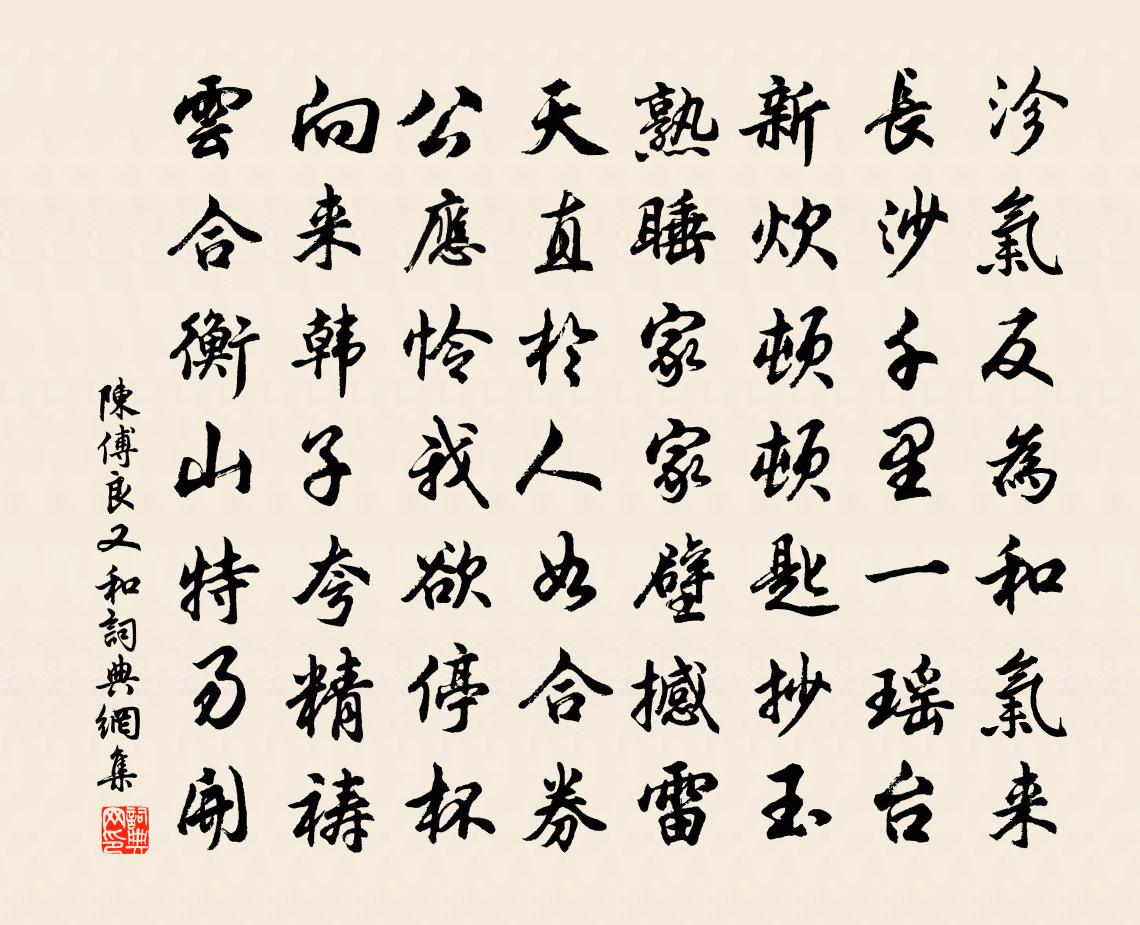 沴氣反為和氣来
長沙千里一瑶台
新炊頓頓匙抄玉
熟睡家家壁撼雷
天直於人如合券
公應怜我欲停杯
向来韩子夸精禱
雲合衡山特易開
陳傅良又和詞典網集
詞典网印